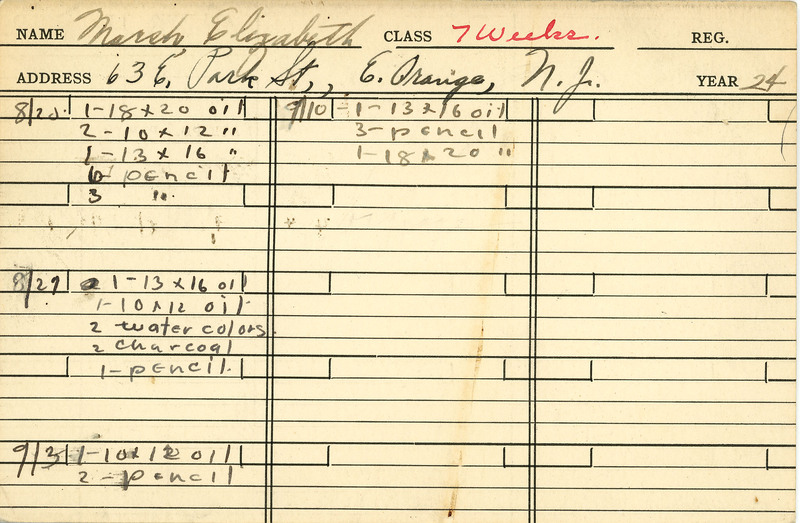 NAME Marsh, Elizabeth CLASS 7 Weeks. REG.
ADDRESS 63 E. Park St., E. Orange, N. J. YEAR 24
8/20 1-18 x 20 oil
2-10 x 12 "
1-13 x 16 "
6 pencil
3 "
8/27 1-13 x 16 oil
1-10 x 12 oil
2 water colors.
2 charcoal
1-pencil.
9/3 1-10 x 12 oil
2-pencil
9/10 1-13 x 16 oil
3-pencil
1-18 x 20 "